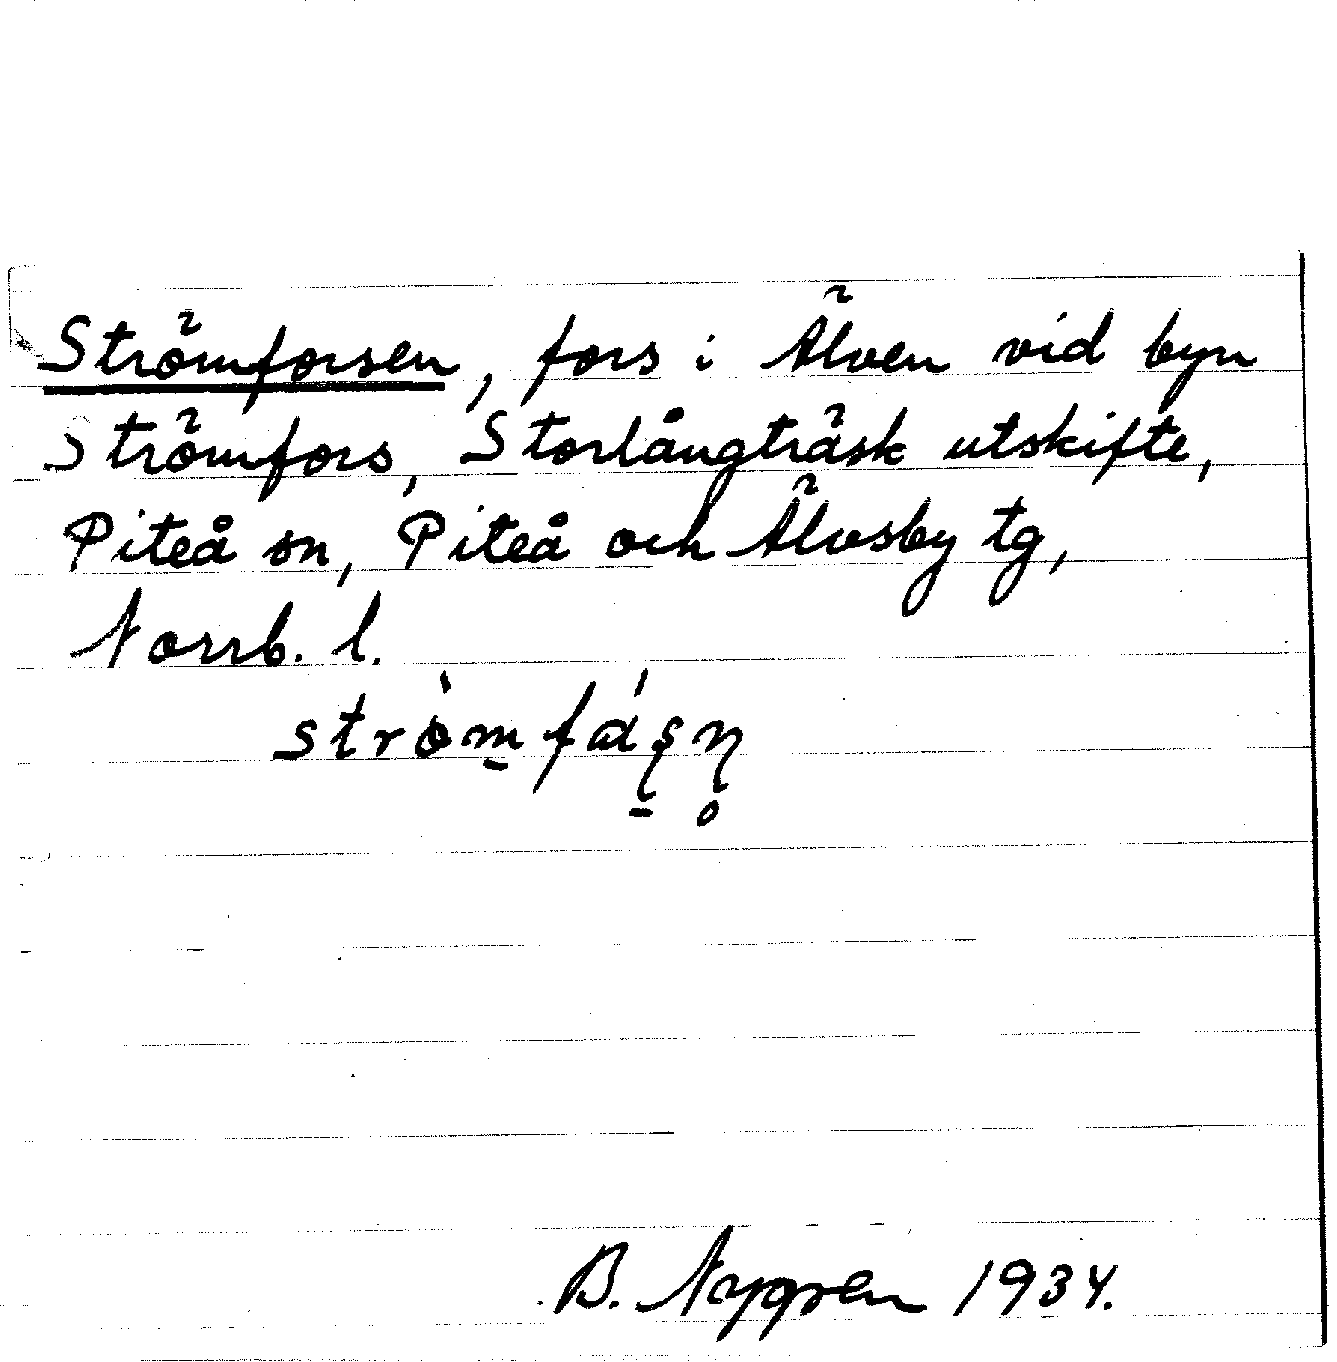 Strömforsen, fors i Älven vid byn
Strömfors, Storlångträsk utskifte,
Piteå sn, Piteå och Älvsby tg,
Norrb. l.
strò̀m̱fɑ́ʂ̠ɳ̥
B. Nygren 1934.